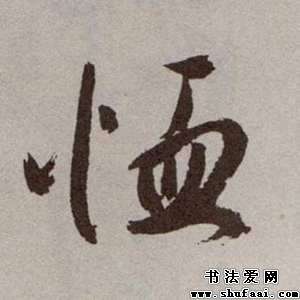 恤
书法爱网
www.shufaai.com